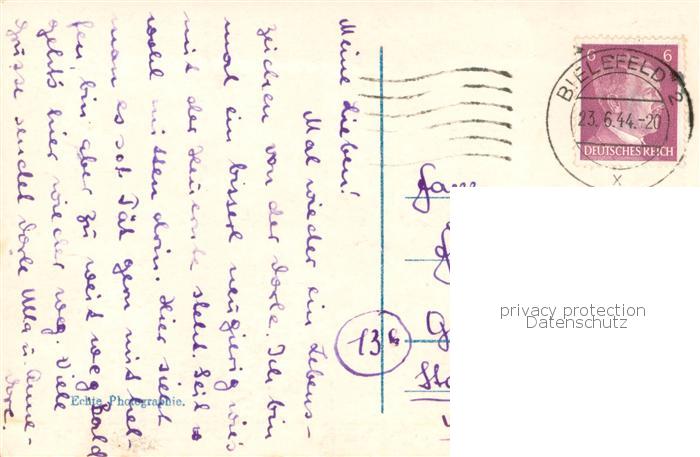 Meine Lieben!
Mal wieder ein Lebens-
zeichen von der Dorle. Ich bin
mal ein bisserl neugierig wie's
mit der Heuernte steht. Seit
wohl mitten drin. Hier sieht
man es so. Tät gern mit hel-
fen bin aber zu weit weg. Bald
geht's hier wieder weg. Viele
Grüsse sendet Dorle u.
Echte Photographie.
6 6
DEUTSCHES REICH
BIELEFELD 2
23.6.44.-20
x
13b
privacy protection
Datenschutz